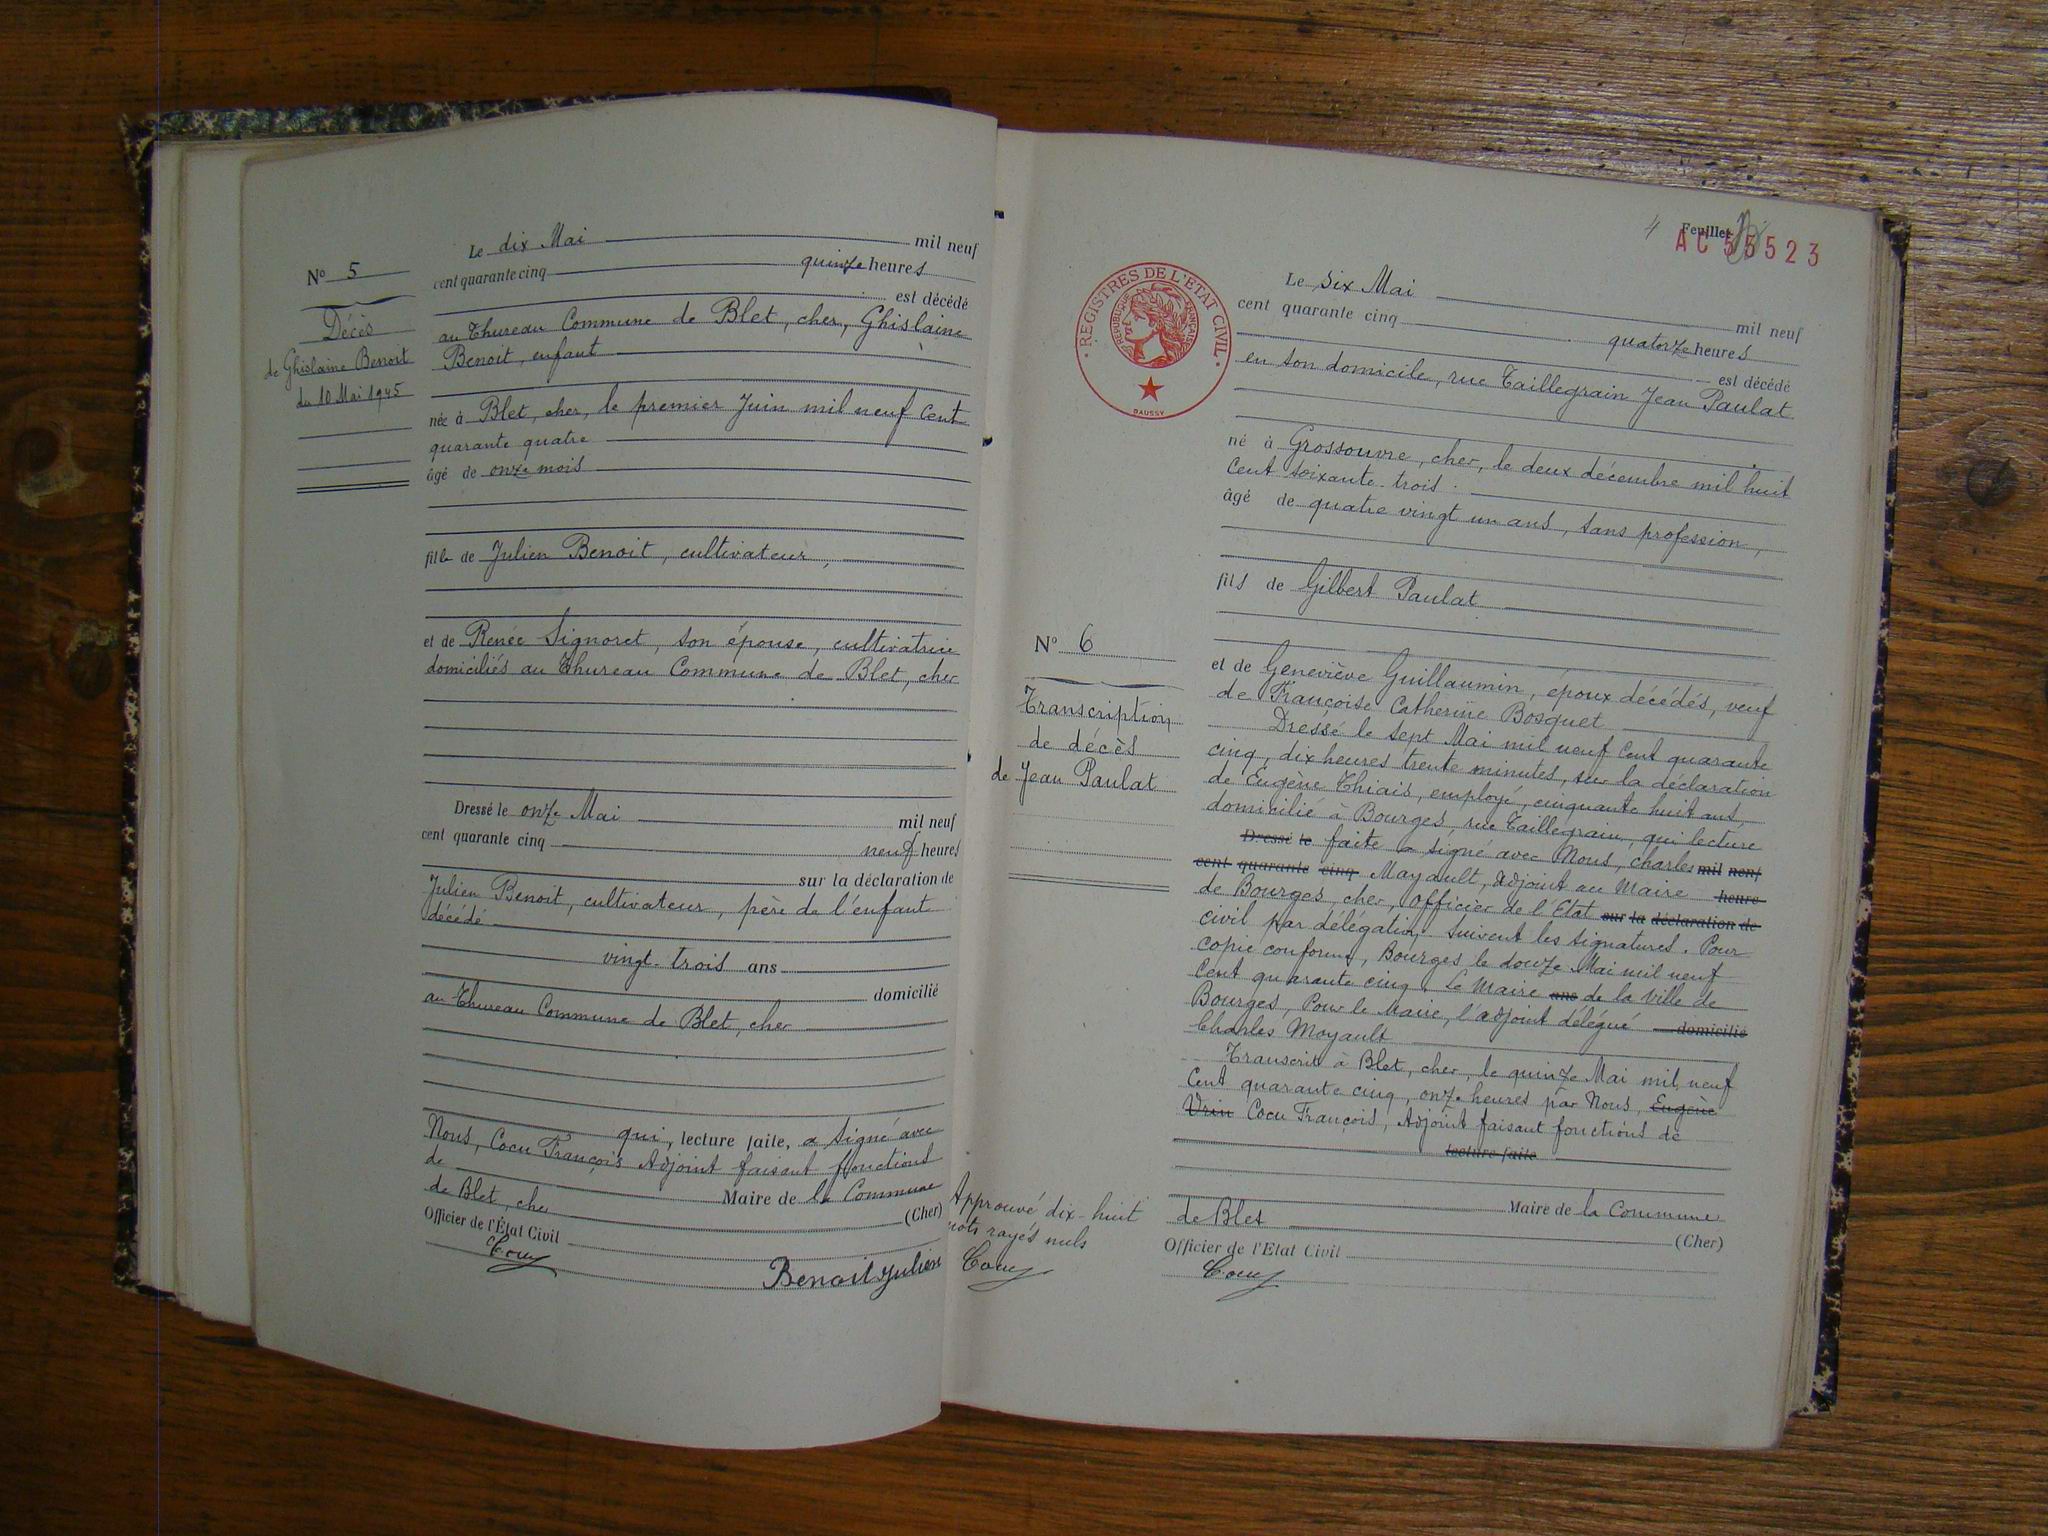 N° 5
Décès
de Ghislaine Benoit
du 10 Mai 1945
Le dix Mai mil neuf
cent quarante cinq quinze heures
est décédé
au Thureau Commune de Blet, cher, Ghislaine
Benoit, enfant
née à Blet, cher, le premier Juin mil neuf cent
quarante quatre
âgé de onze mois
fille de Julien Benoit, cultivateur,
et de Renée Signoret, son épouse, cultivatrice
domiciliés au Thureau Commune de Blet, cher
Dressé le onze Mai mil neuf
cent quarante cinq neuf heures
sur la déclaration de
Julien Benoit, cultivateur, père de l'enfant
décédé
vingt-trois ans
domicilié
au Thureau Commune de Blet, cher
qui, lecture faite, a signé avec
Nous, Cocu François Adjoint faisant fonctions
de Maire de la Commune
de Blet, cher (Cher)
Officier de l'État Civil
Cocu
Benoit Julien
4 Feuillet
AC 55523
REGISTRES DE L'ÉTAT CIVIL
RÉPUBLIQUE FRANÇAISE
DAUSSY
N° 6
Transcription
de décès
de Jean Paulat
Le six Mai mil neuf
cent quarante cinq quatorze heures
est décédé
en son domicile, rue Taillegrain Jean Paulat
né à Grossouvre, cher, le deux décembre mil huit
cent soixante-trois
âgé de quatre vingt un ans, sans profession,
fils de Gilbert Paulat
et de Geneviève Guillaumin, époux décédés, veuf
de Françoise Catherine Bosquet
Dressé le sept Mai mil neuf cent quarante
cinq, dix heures trente minutes, sur la déclaration
de Eugène Thiais, employé, cinquante huit ans,
domicilié à Bourges, rue Taillegrain, qui lecture
Dressé le faite a signé avec Nous, charles mil neuf
cent quarante cinq Mayault, Adjoint au Maire heure
de Bourges, cher, officier de l'Etat sur la déclaration de
civil par délégation, suivent les signatures. Pour
copie conforme, Bourges le douze Mai mil neuf
cent quarante cinq. Le Maire ans de la ville de
Bourges, Pour le Maire, l'adjoint délégué domicilié
Charles Moyault
Transcrit à Blet, cher, le quinze Mai mil neuf
cent quarante cinq, onze heures par Nous, Eugène
Vrin Cocu François, Adjoint faisant fonctions de
lecture faite
Maire de la Commune
de Blet (Cher)
Officier de l'État Civil
Cocu
Approuvé dix-huit
mots rayés nuls
Cocu